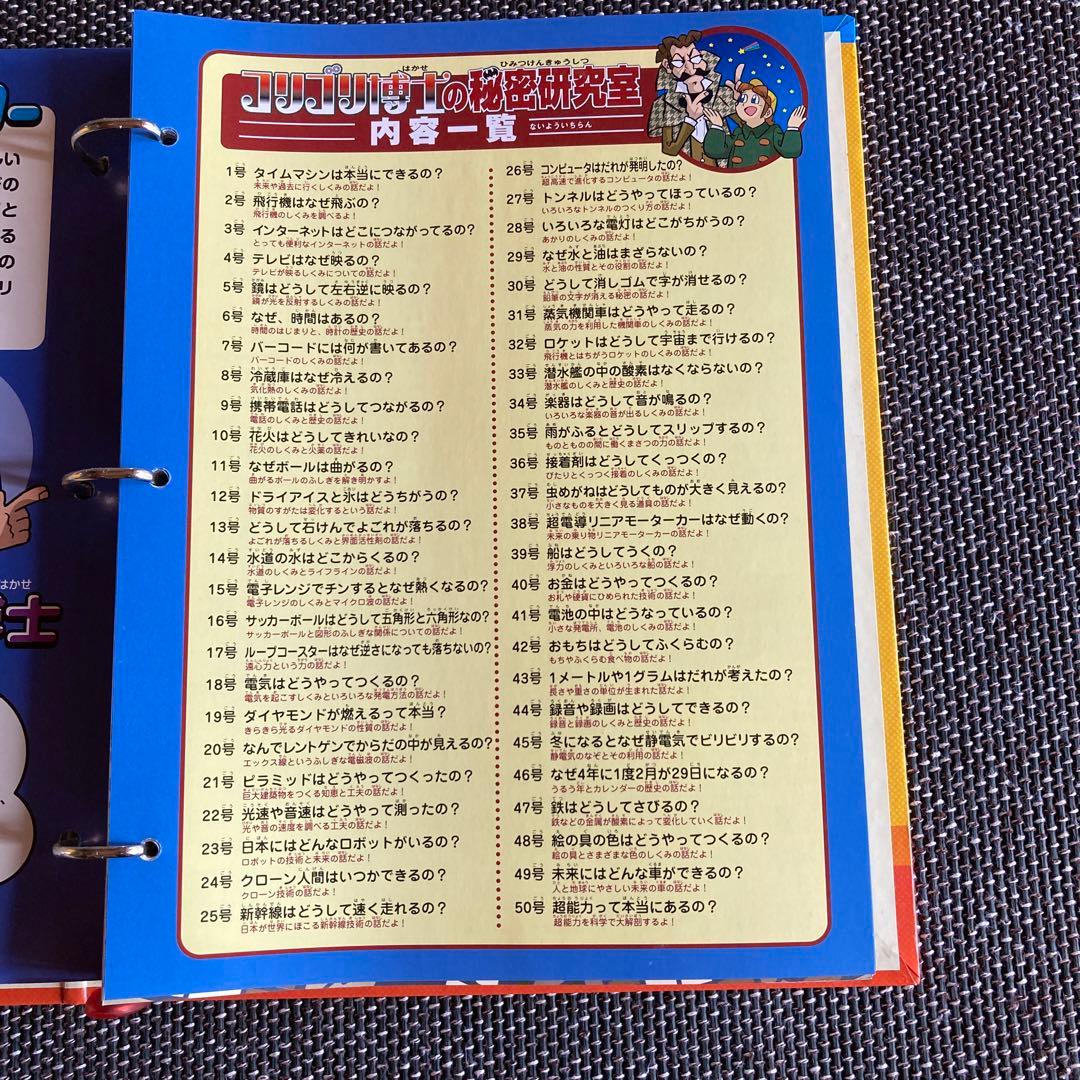 ー
しい
ドの
と
る
の
リ
はかせ
博士
はかせ
ひみつけんきゅうしつ
コリゴリ博士の秘密研究室
内容一覧
ないよういちらん
1号 タイムマシンは本当にできるの？
未来や過去に行くしくみの話だよ！
2号 飛行機はなぜ飛ぶの？
飛行機のしくみを調べるよ！
3号 インターネットはどこにつながってるの？
とっても便利なインターネットの話だよ！
4号 テレビはなぜ映るの？
テレビが映るしくみについての話だよ！
5号 鏡はどうして左右逆に映るの？
鏡が光を反射するしくみの話だよ！
6号 なぜ、時間はあるの？
時間のはじまりと、時計の歴史の話だよ！
7号 バーコードには何が書いてあるの？
バーコードのしくみの話だよ！
8号 冷蔵庫はなぜ冷えるの？
気化熱のしくみの話だよ！
9号 携帯電話はどうしてつながるの？
電話のしくみと歴史の話だよ！
10号 花火はどうしてきれいなの？
花火のしくみと火薬の話だよ！
11号 なぜボールは曲がるの？
曲がるボールのふしぎを解き明かすよ！
12号 ドライアイスと氷はどうちがうの？
物質のすがたは変化するという話だよ！
13号 どうして石けんでよごれが落ちるの？
よごれが落ちるしくみと界面活性剤の話だよ！
14号 水道の水はどこからくるの？
水道のしくみとライフラインの話だよ！
15号 電子レンジでチンするとなぜ熱くなるの？
電子レンジのしくみとマイクロ波の話だよ！
16号 サッカーボールはどうして五角形と六角形なの？
サッカーボールと図形のふしぎな関係についての話だよ！
17号 ループコースターはなぜ逆さになっても落ちないの？
遠心力という力の話だよ！
18号 電気はどうやってつくるの？
電気を起こすしくみといろいろな発電方法の話だよ！
19号 ダイヤモンドが燃えるって本当？
きらきら光るダイヤモンドの性質の話だよ！
20号 なんでレントゲンでからだの中が見えるの？
エックス線というふしぎな電磁波の話だよ！
21号 ピラミッドはどうやってつくったの？
巨大建築物をつくる知恵と工夫の話だよ！
22号 光速や音速はどうやって測ったの？
光や音の速度を調べる工夫の話だよ！
23号 日本にはどんなロボットがいるの？
ロボットの技術と未来の話だよ！
24号 クローン人間はいつかできるの？
クローン技術の話だよ！
25号 新幹線はどうして速く走れるの？
日本が世界にほこる新幹線技術の話だよ！
26号 コンピュータはだれが発明したの？
超高速で進化するコンピュータの話だよ！
27号 トンネルはどうやってほっているの？
いろいろなトンネルのつくり方の話だよ！
28号 いろいろな電灯はどこがちがうの？
あかりのしくみの話だよ！
29号 なぜ水と油はまざらないの？
水と油の性質とその役割の話だよ！
30号 どうして消しゴムで字が消せるの？
鉛筆の文字が消える秘密の話だよ！
31号 蒸気機関車はどうやって走るの？
蒸気の力を利用した機関車のしくみの話だよ！
32号 ロケットはどうして宇宙まで行けるの？
飛行機とはちがうロケットのしくみの話だよ！
33号 潜水艦の中の酸素はなくならないの？
潜水艦のしくみと歴史の話だよ！
34号 楽器はどうして音が鳴るの？
いろいろな楽器の音が出るしくみの話だよ！
35号 雨がふるとどうしてスリップするの？
ものとものの間に働くまさつの力の話だよ！
36号 接着剤はどうしてくっつくの？
ぴたりとくっつく接着のしくみの話だよ！
37号 虫めがねはどうしてものが大きく見えるの？
小さなものを大きく見る道具の話だよ！
38号 超電導リニアモーターカーはなぜ動くの？
未来の乗り物リニアモーターカーの話だよ！
39号 船はどうしてうくの？
浮力のしくみといろいろな船の話だよ！
40号 お金はどうやってつくるの？
お札や硬貨にひめられた技術の話だよ！
41号 電池の中はどうなっているの？
小さな発電所、電池のしくみの話だよ！
42号 おもちはどうしてふくらむの？
もちやふくらむ食べ物の話だよ！
43号 1メートルや1グラムはだれが考えたの？
長さや重さの単位が生まれた話だよ！
44号 録音や録画はどうしてできるの？
録音と録画のしくみと歴史の話だよ！
45号 冬になるとなぜ静電気でビリビリするの？
静電気のなぞとその利用の話だよ！
46号 なぜ4年に1度2月が29日になるの？
うるう年とカレンダーの歴史の話だよ！
47号 鉄はどうしてさびるの？
鉄などの金属が酸素によって変化していく話だよ！
48号 絵の具の色はどうやってつくるの？
絵の具とさまざまな色のしくみの話だよ！
49号 未来にはどんな車ができるの？
人と地球にやさしい未来の車の話だよ！
50号 超能力って本当にあるの？
超能力を科学で大解剖するよ！